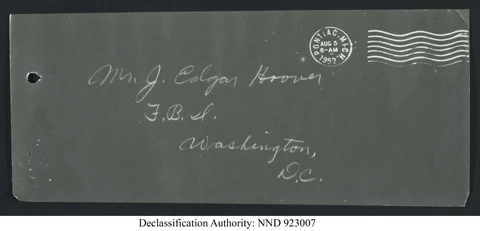 PONTIAC, MICH.
AUG 5
6-AM
1952
Mr. J. Edgar Hoover
F.B.I.
Washington,
D.C.
Declassification Authority: NND 923007